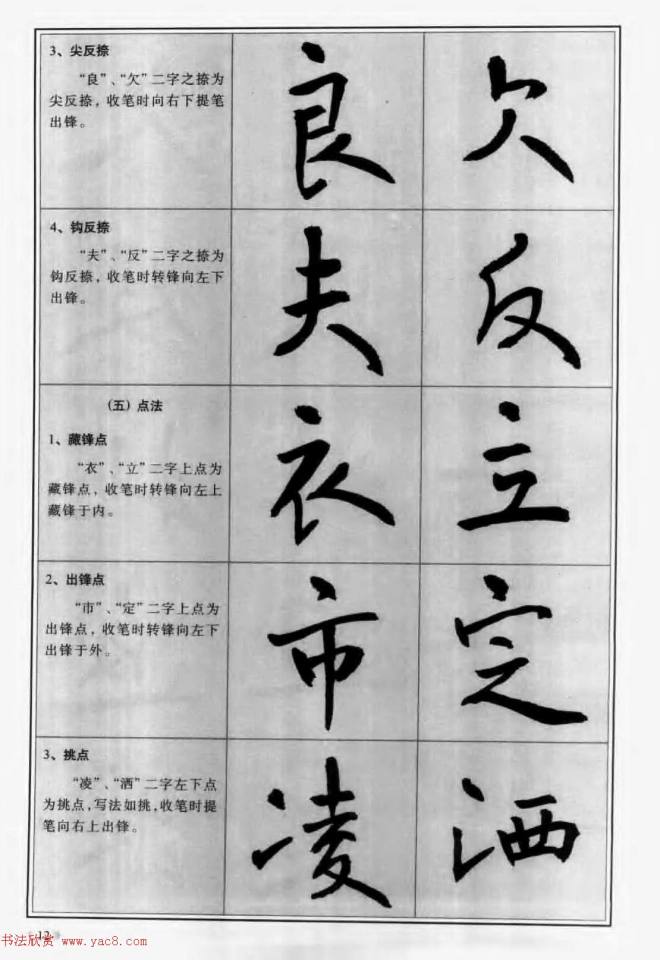 3、尖反捺
“良”、“欠”二字之捺为
尖反捺，收笔时向右下提笔
出锋。
良 欠
4、钩反捺
“夫”、“反”二字之捺为
钩反捺，收笔时转锋向左下
出锋。
夫 反
(五) 点法
1、藏锋点
“衣”、“立”二字上点为
藏锋点，收笔时转锋向左上
藏锋于内。
衣 立
2、出锋点
“市”、“定”二字上点为
出锋点，收笔时转锋向左下
出锋于外。
市 定
3、挑点
“凌”、“洒”二字左下点
为挑点，写法如挑，收笔时提
笔向右上出锋。
凌 洒
12
书法欣赏 www.yac8.com